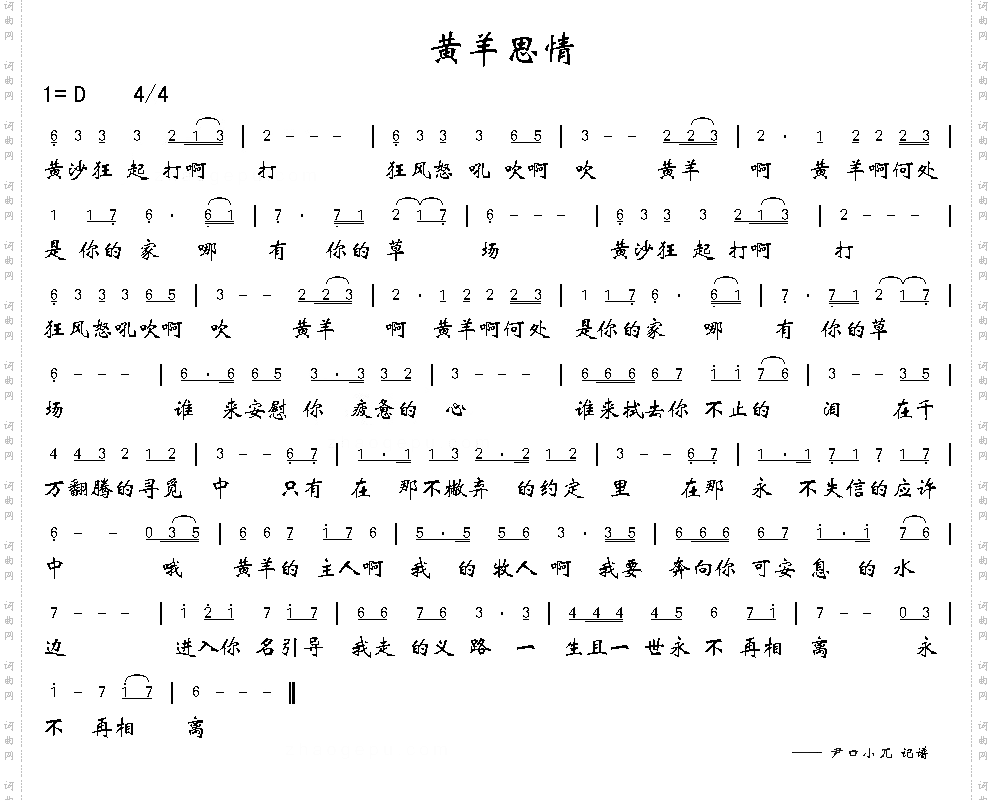 黄羊思情
1= D 4/4
6 3 3 3 2 1 3 | 2 - - - | 6 3 3 3 6 5 | 3 - - 2 2 3 | 2 · 1 2 2 2 3 |
黄沙狂 起 打啊 打 狂风怒 吼 吹啊 吹 黄羊 啊 黄 羊啊何处
1 1 7 6 · 6 1 | 7 · 7 1 2 1 7 | 6 - - - | 6 3 3 3 2 1 3 | 2 - - - |
是 你的 家 哪 有 你的 草 场 黄沙狂 起 打啊 打
6 3 3 3 6 5 | 3 - - 2 2 3 | 2 · 1 2 2 2 3 | 1 1 7 6 · 6 1 | 7 · 7 1 2 1 7 |
狂风怒吼吹啊 吹 黄羊 啊 黄羊啊何处 是你的家 哪 有 你的草
6 - - - | 6 · 6 6 5 3 · 3 3 2 | 3 - - - | 6 6 6 6 7 i i 7 6 | 3 - - 3 5 |
场 谁 来安慰 你 疲惫的 心 谁来拭去你 不止的 泪 在千
4 4 3 2 1 2 | 3 - - 6 7 | 1 · 1 1 3 2 · 2 1 2 | 3 - - 6 7 | 1 · 1 7 1 7 1 7 |
万翻腾的寻觅 中 只有 在 那不撇弃 的约定 里 在那 永 不失信的应许
6 - - 0 3 5 | 6 6 7 i 7 6 | 5 · 5 5 6 3 · 3 5 | 6 6 6 6 7 i · i 7 6 |
中 哦 黄羊的 主人啊 我 的 牧人 啊 我要 奔向你 可安 息 的 水
7 - - - | i 2 i 7 i 7 | 6 6 7 6 3 · 3 | 4 4 4 4 5 6 7 i | 7 - - 0 3 |
边 进入你 名引导 我走 的义 路 一 生且一 世永 不 再相 离 永
i - 7 i 7 | 6 - - - ‖
不 再相 离
—— 尹口小兀 记谱
词曲网